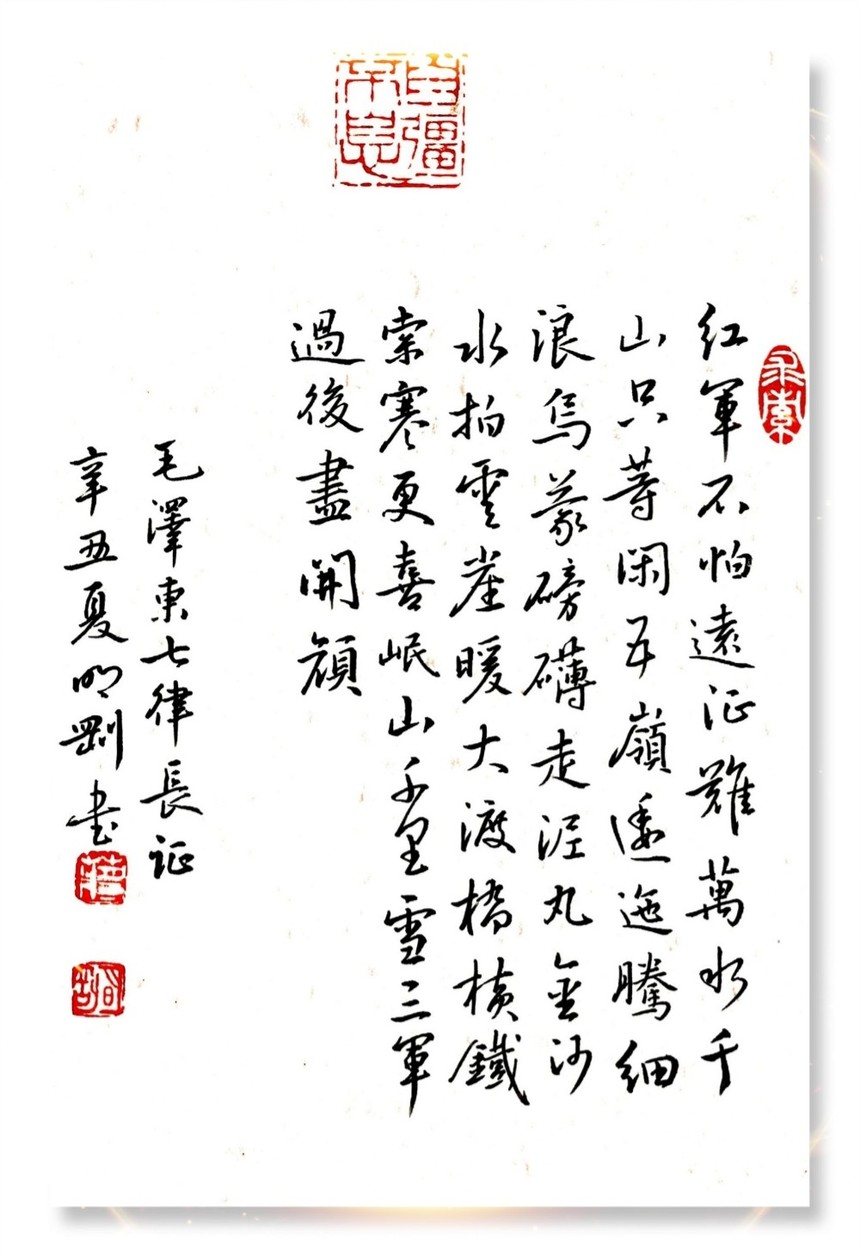 自彊不息
求索
紅軍不怕遠征難萬水千
山只等閑五嶺逶迤騰細
浪烏蒙磅礴走泥丸金沙
水拍雲崖暖大渡橋橫鐵
索寒更喜岷山千里雪三軍
過後盡開顏
毛澤東七律長征
辛丑夏明剛书